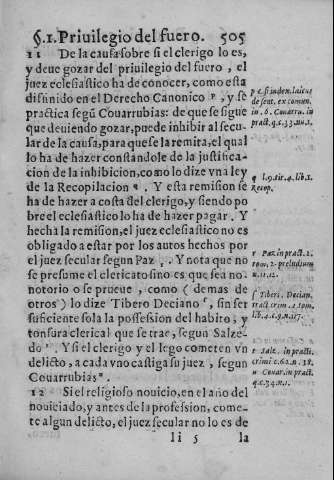 §.1. Priuilegio del fuero. 505
11 De la causa sobre si el clerigo lo es,
y deue gozar del priuilegio del fuero, el
juez eclesiastico ha de conocer, como esta
difinido en el Derecho Canonico p, y se
practica segũ Couarrubias: de que se sigue
que deuiendo gozar, puede inhibir al secu-
lar de la causa, para que se la remita, el qual
lo ha de hazer constandole de la justifica-
cion de la inhibicion, como lo dize vna ley
de la Recopilacion q. Y esta remision se
ha de hazer a costa del clerigo, y siendo po
bre el eclesiastico lo ha de hazer pagar. Y
hecha la remision, el juez eclesiastico no es
obligado a estar por los autos hechos por
el juez secular segun Paz r. Y nota que no
se presume el clericato sino es que sea no-
notorio o se prueue, como (demas de
otros) lo dize Tibero Deciano s, sin ser
suficiente sola la possession del habito, y
tonsura clerical que se trae, segun Salze-
do t. Y si el clerigo y el lego cometen vn
delicto, a cada vno castiga su juez, segun
Couarrubias u.
12 Si el religioso nouicio, en el año del
nouiciado, y antes de la profession, come-
te algun delicto, el juez secular no lo es de
li 5 la
p c. si index. laicus
de sent. ex comun.
in. 6. Couarru. in
pract. q.c.33.nu.1.
q l.9. tit. 4. lib. 1.
Recop.
r Paz. in pract. 2.
tom. 2. preludium
n. 11. 12.
s Tiberi. Decian.
tract crim. 2. tom.
lib. 4. c. 9. n. 117.
t Salz. in practic.
crimi. c. 62. n. 38.
u Couar. in pract.
q.c.34.n.1.